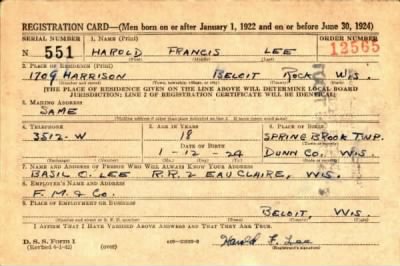 REGISTRATION CARD—(Men born on or after January 1, 1922 and on or before June 30, 1924)
SERIAL NUMBER 1. NAME (Print) ORDER NUMBER
N 551 HAROLD FRANCIS LEE 12565
(First) (Middle) (Last)
2. PLACE OF RESIDENCE (Print)
1709 HARRISON BELOIT ROCK WIS.
(Number and street) (Town, township, village, or city) (County) (State)
[THE PLACE OF RESIDENCE GIVEN ON THE LINE ABOVE WILL DETERMINE LOCAL BOARD
JURISDICTION; LINE 2 OF REGISTRATION CERTIFICATE WILL BE IDENTICAL]
3. MAILING ADDRESS
SAME
4. TELEPHONE 5. AGE IN YEARS 6. PLACE OF BIRTH
3512-W 18 SPRING BROOK TWP.
DATE OF BIRTH
1-12-24 DUNN CO. WIS.
7. NAME AND ADDRESS OF PERSON WHO WILL ALWAYS KNOW YOUR ADDRESS
BASIL C. LEE R.R. 2 EAU CLAIRE, WIS.
8. EMPLOYER'S NAME AND ADDRESS
F. M. & CO.
9. PLACE OF EMPLOYMENT OR BUSINESS
BELOIT, WIS.
I AFFIRM THAT I HAVE VERIFIED ABOVE ANSWERS AND THAT THEY ARE TRUE.
D. S. S. Form 1
(Revised 6-1-42) (over) Harold F. Lee
(Registrant's signature)